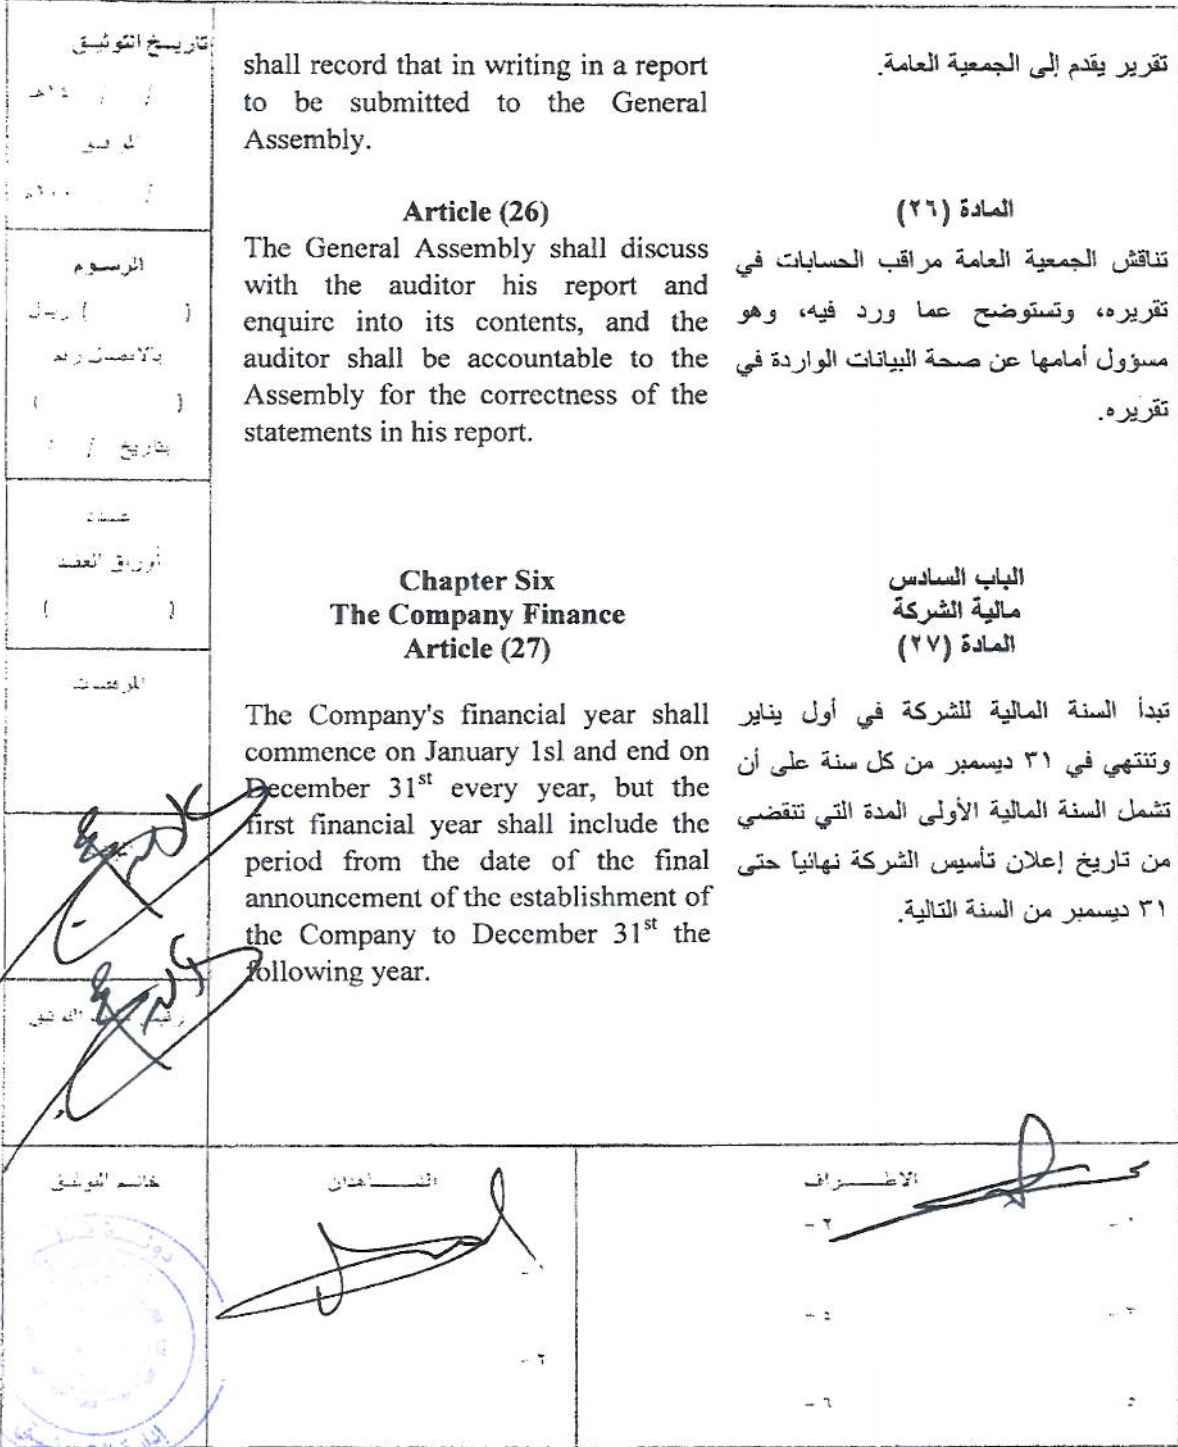 تاريخ التوثيق
الرسوم
) ريال (
( )
بتاريخ / /
أوراق العقد
( )
shall record that in writing in a report
to be submitted to the General
Assembly.
Article (26)
The General Assembly shall discuss
with the auditor his report and
enquire into its contents, and the
auditor shall be accountable to the
Assembly for the correctness of the
statements in his report.
Chapter Six
The Company Finance
Article (27)
The Company's financial year shall
commence on January 1sl and end on
December 31st every year, but the
first financial year shall include the
period from the date of the final
announcement of the establishment of
the Company to December 31st the
following year.
تقرير يقدم إلى الجمعية العامة.
المادة (٢٦)
تناقش الجمعية العامة مراقب الحسابات في
تقريره، وتستوضح عما ورد فيه، وهو
مسؤول أمامها عن صحة البيانات الواردة في
تقريره.
الباب السادس
مالية الشركة
المادة (٢٧)
تبدأ السنة المالية للشركة في أول يناير
وتنتهي في ٣١ ديسمبر من كل سنة على أن
تشمل السنة المالية الأولى المدة التي تنقضي
من تاريخ إعلان تأسيس الشركة نهائياً حتى
٣١ ديسمبر من السنة التالية.
الاطـــراف
٢ -
٦ -
الشـــاهدان
٢ -
خاتم التوثيق